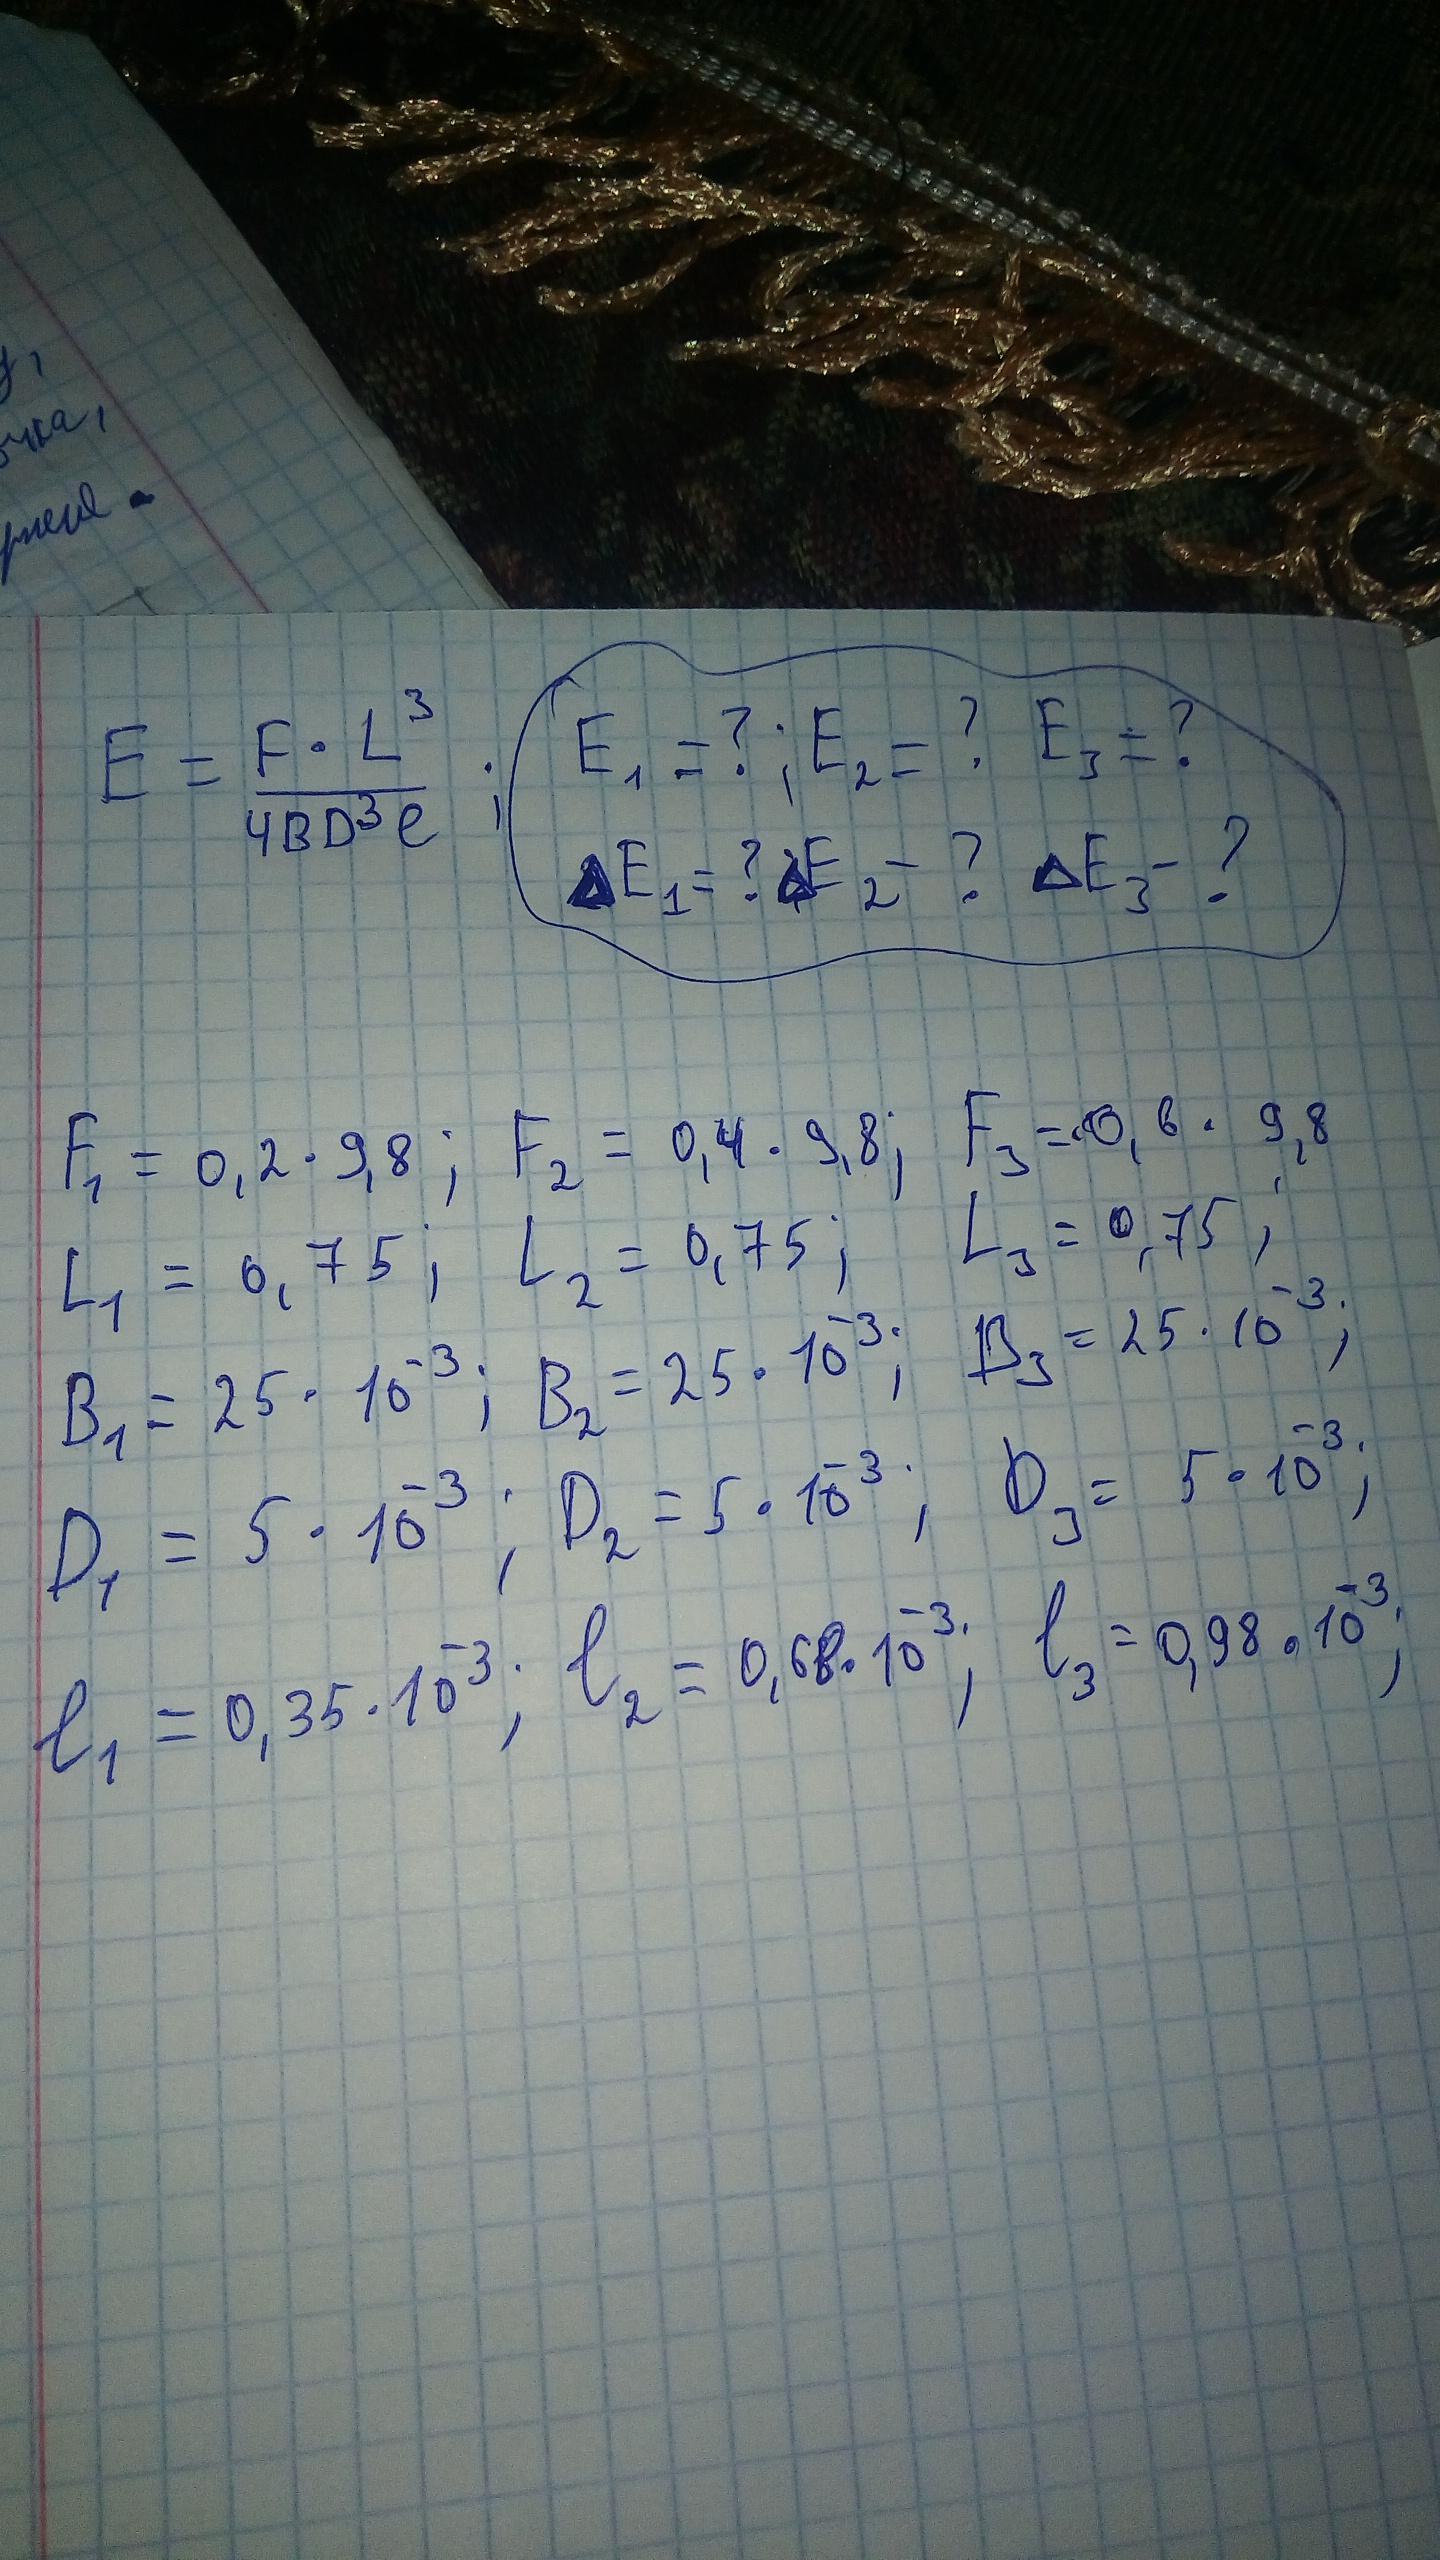 E = F · L³ / 4BD³l ; E₁ = ? ; E₂ = ? E₃ = ?
ΔE₁ = ? ΔE₂ - ? ΔE₃ - ?
F₁ = 0,2 · 9,8 ; F₂ = 0,4 · 9,8 ; F₃ = 0,6 · 9,8 ;
L₁ = 0,75 ; L₂ = 0,75 ; L₃ = 0,75 ;
B₁ = 25 · 10⁻³ ; B₂ = 25 · 10⁻³ ; B₃ = 25 · 10⁻³ ;
D₁ = 5 · 10⁻³ ; D₂ = 5 · 10⁻³ ; D₃ = 5 · 10⁻³ ;
l₁ = 0,35 · 10⁻³ ; l₂ = 0,68 · 10⁻³ ; l₃ = 0,98 · 10⁻³ ;